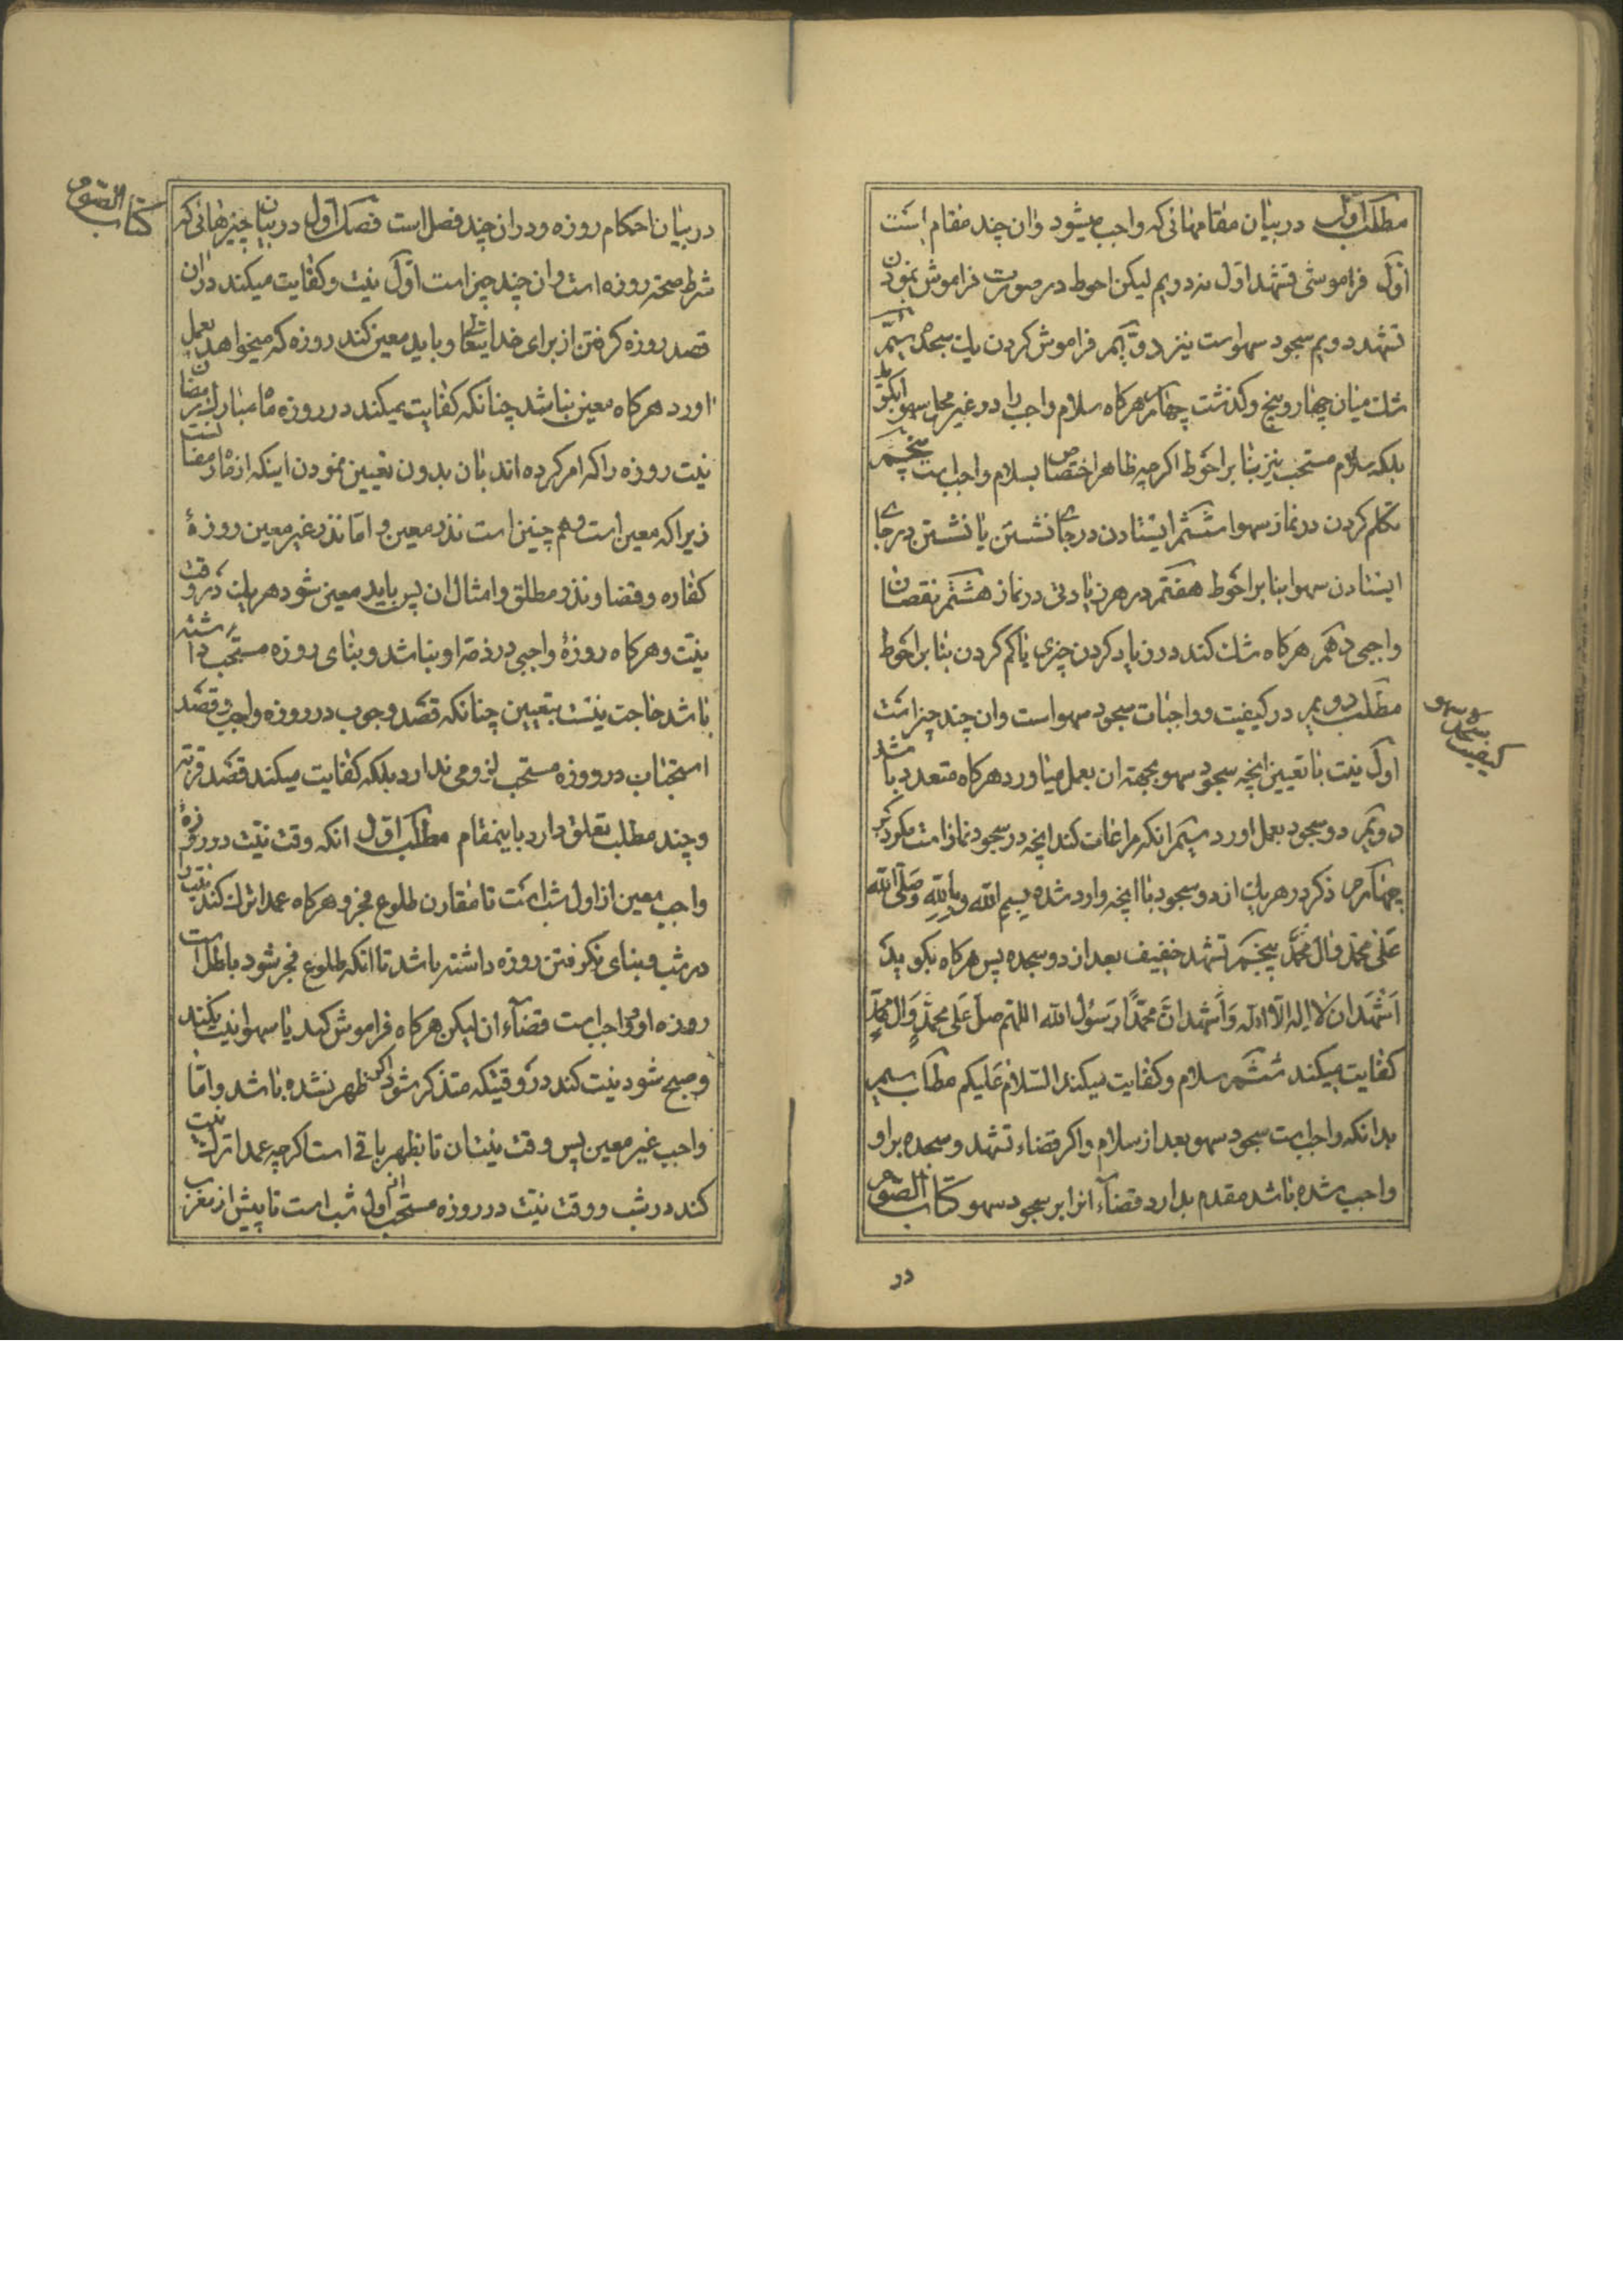 مطلب اول در بیان مقامهائی که واجب میشود وان چند مقام است
اول فراموشی تشهد اول نه دویم لیکن احوط در صورت فراموش نمودن
تشهد دویم سجود سهواست نیز دویم فراموش کردن یك سجده سیم
شك میان چهار و پنج و کذشت چهارم هرکاه سلام واجب را در غیر محل سهوا بکوید
بلکه سلام مستحب نیز بنا بر احوط اکرچه ظاهرا اختصاص بسلام واجب است پنجم
تکلم کردن در نماز سهوا ششم ایستادن در جای نشستن یا نشستن در جای
ایستادن سهوا بنا بر احوط هفتم در هر زیادتی در نماز هشتم نقصان
واجبی دهم هرکاه شك کند در زیاد کردن چیزی یا کم کردن بنا بر احوط
مطلب دویم در کیفیت وواجبات سجود سهواست وان چند چیز است
کیفیت سجده سهو
اول نیت با تعیین انچه سجود سهو بجهته ان بعمل میاورد هرکاه متعدد باشد
دویم دو سجود بعمل اورد سیم انکه مراعات کند انچه در سجود نماز است
چهارم ذکر در هر یك از دو سجود با انچه وارد شده بسم الله وبالله وصلی الله
علی محمد وال محمد پنجم تشهد خفیف بعد از دو سجده پس هرکاه بکوید
اشهد ان لا اله الا الله واشهد ان محمدا رسول الله اللهم صل علی محمد وال محمد
کفایت میکند ششم سلام وکفایت میکند السلام علیکم مطلب سیم
بدانکه واجب است سجود سهو بعد از سلام واکر قضاء تشهد وسجده بر او
واجب شده باشد مقدم بدارد قضاء انرا بر سجود سهو کتاب الصوم
در
کتاب الصوم
در بیان احکام روزه ودر ان چند فصل است فصل اول در بیان چیزهائی که
شرط صحة روزه است وان چند چیز است اول نیت وکفایت میکند در ان
قصد روزه کرفتن از برای خدایتعالی وباید معین کند روزه که میخواهد بعمل
اورد هرکاه معین نباشد چنانکه کفایت میکند در روزه ماه مبارك رمضان
نیت روزه را که امر کرده اند بان بدون تعیین نمودن اینکه از ماه رمضان است
زیرا که معین است وهم چنین است نذر معین واما نذر غیر معین روزهٔ
کفاره وقضا ونذر مطلق وامثال ان پس باید معین شود هر یك در وقت
نیت وهرکاه روزهٔ واجبی در ذمه او نباشد وبنای روزه مستحب داشته
باشد حاجت نیست بتعیین چنانکه قصد وجوب در روزه واجب وقصد
استحباب در روزه مستحب لزومی ندارد بلکه کفایت میکند قصد قربة
وچند مطلب تعلق دارد باینمقام مطلب اول انکه وقت نیت در روزهٔ
واجب معین از اول شب است تا مقارن طلوع فجر وهرکاه عمدا ترك کند نیت را
در شب وبنای نکرفتن روزه داشته باشد تا انکه طلوع فجر شود باطل است
روزه او وواجب است قضاء ان لیکن هرکاه فراموش کند یا سهوا نیت نکند
وصبح شود نیت کند در وقتیکه متذکر شود اکر ظهر نشده باشد واما
واجب غیر معین پس وقت نیت ان تا بظهر باقی است اکرچه عمدا ترك نیت
کند در شب ووقت نیت در روزه مستحب از اول شب است تا پیش از مغرب